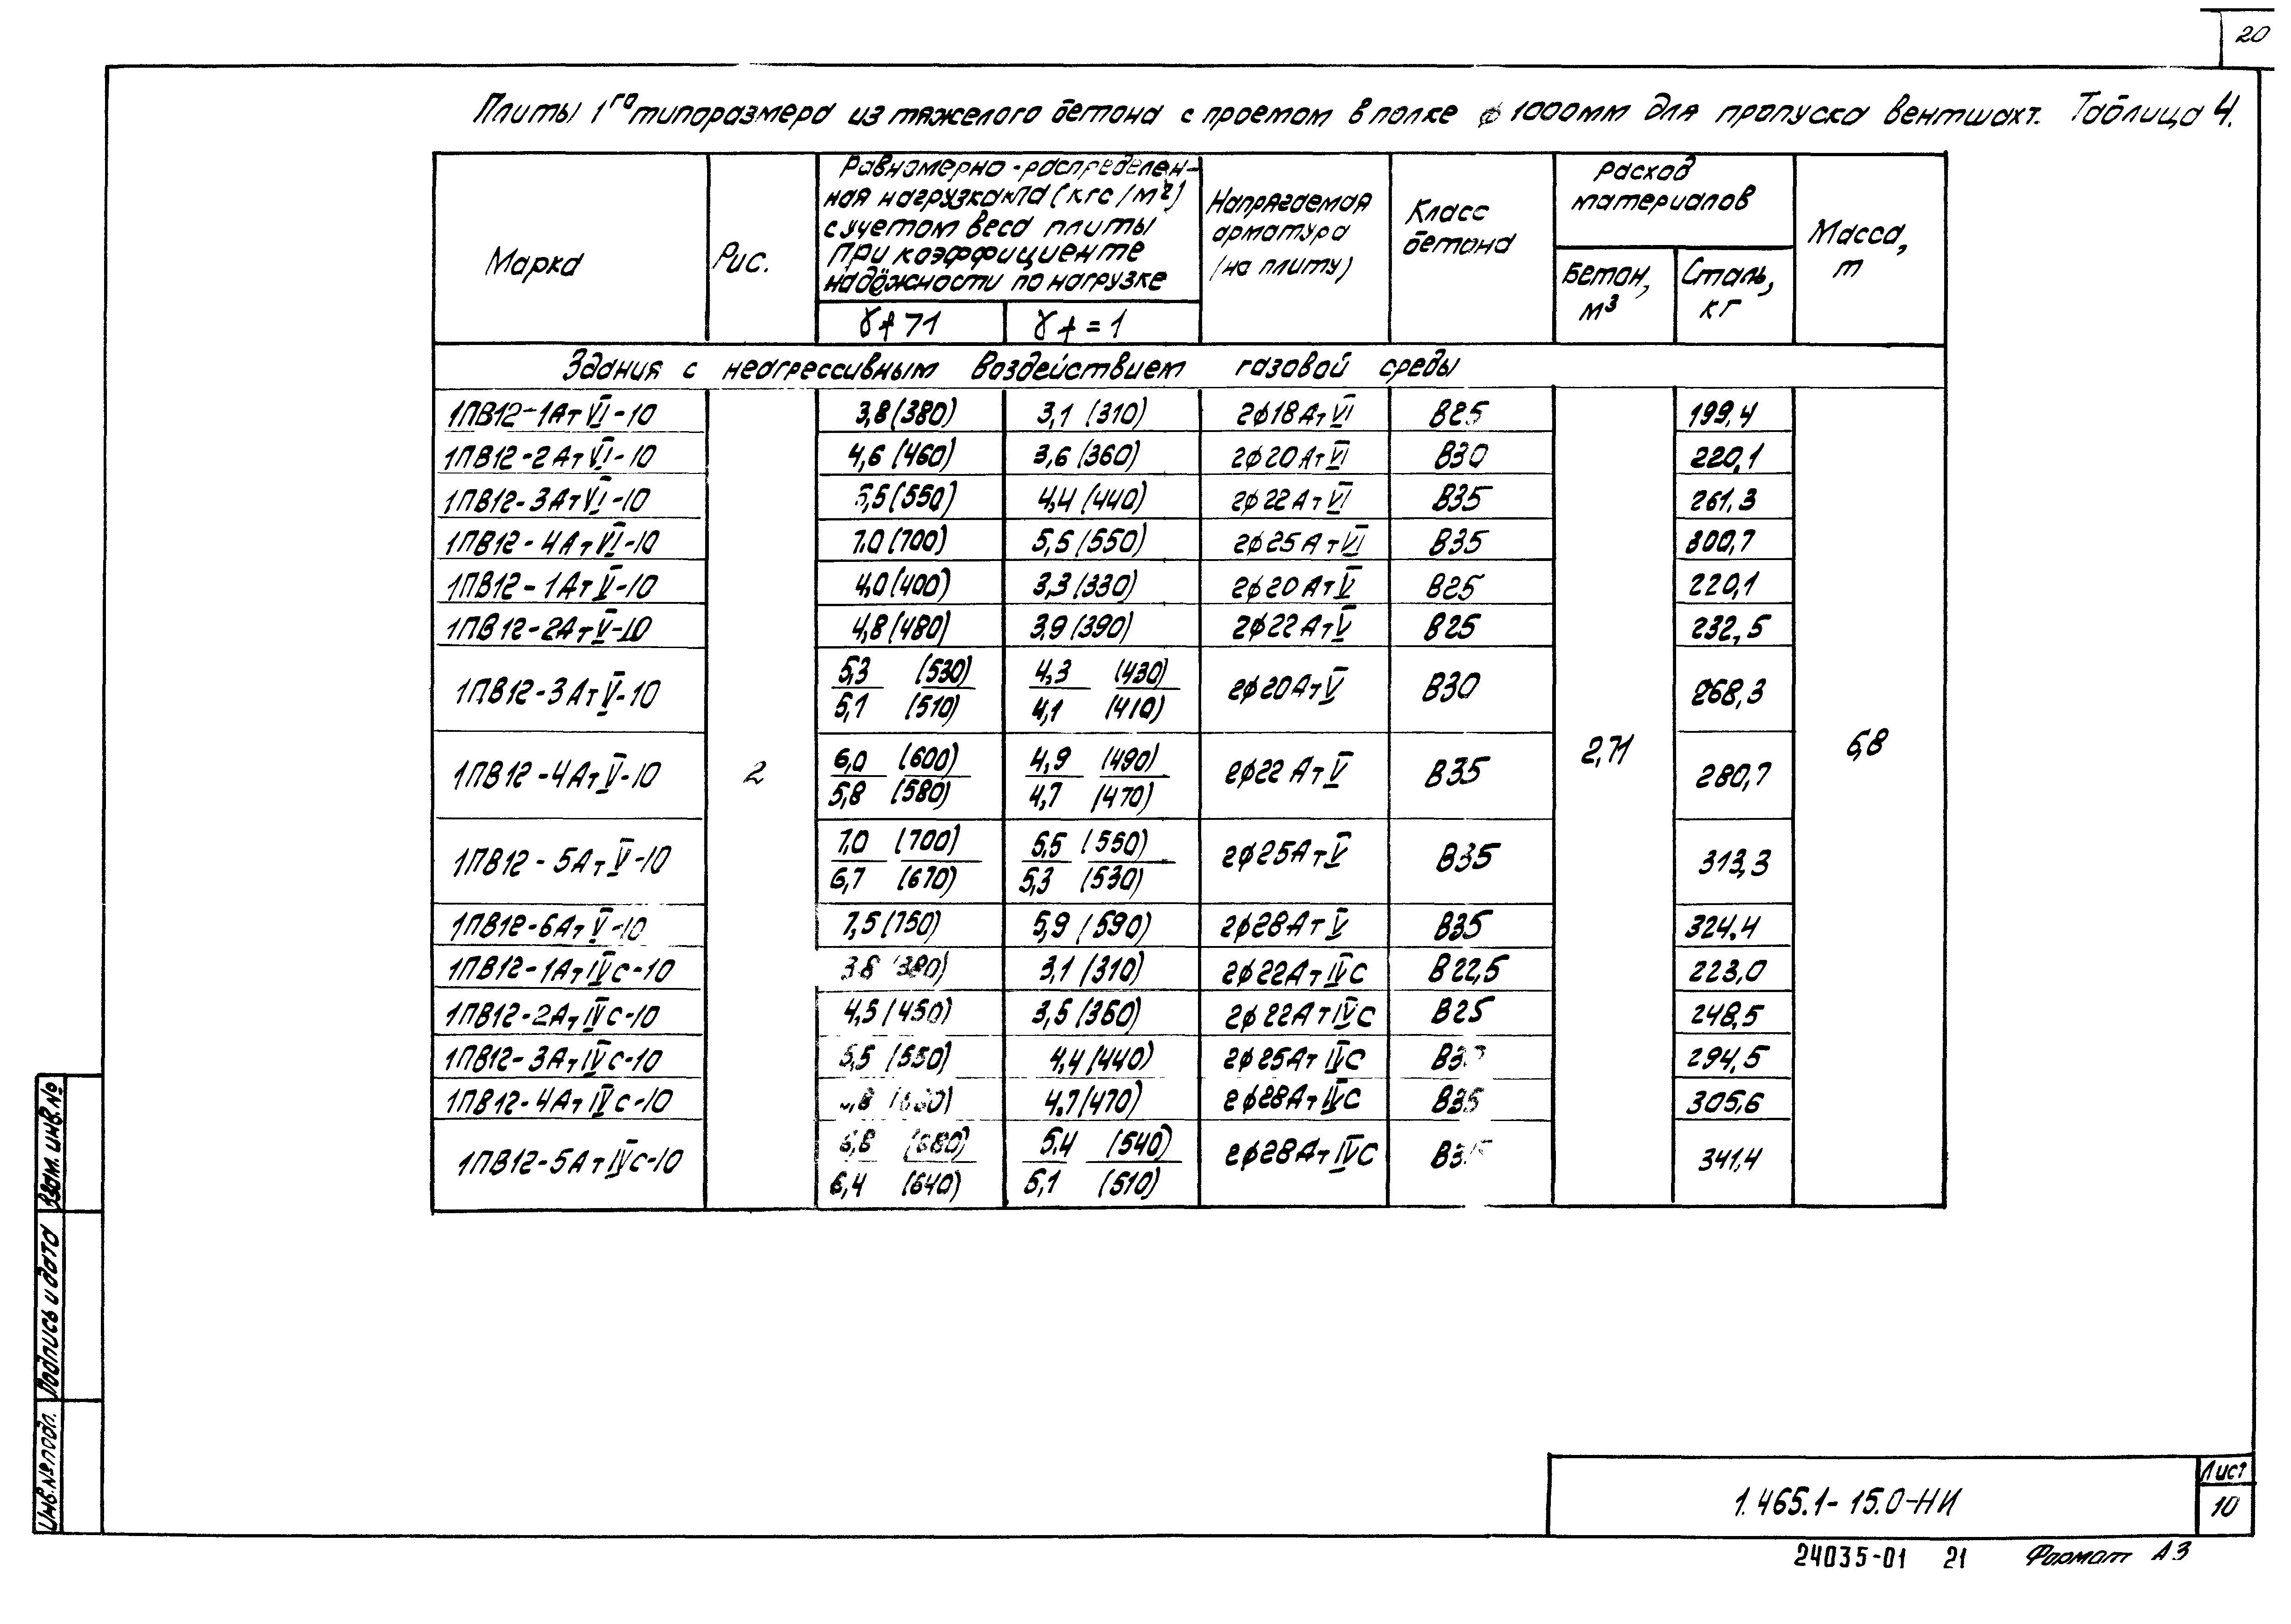 20
Плиты 1го типоразмера из тяжелого бетона с проемом в полке ϕ 1000мм для пропуска вентшахт. Таблица 4.
Марка
Рис.
Равномерно-распределен-
ная нагрузка кПа (кгс/м²)
с учетом веса плиты
при коэффициенте
надёжности по нагрузке
γf >1
γf = 1
Напрягаемая
арматура
(на плиту)
Класс
бетона
Расход
материалов
Бетон,
м³
Сталь,
кг
Масса,
т
Здания с неагрессивным воздействием газовой среды
1ПВ12-1АтVI-10 3,8(380) 3,1 (310) 2ϕ18АтVI В25 199,4
1ПВ12-2АтVI-10 4,6 (460) 3,6 (360) 2ϕ20АтVI В30 220,1
1ПВ12-3АтVI-10 5,5(550) 4,4 (440) 2ϕ22АтVI В35 261,3
1ПВ12-4АтVI-10 7.0(700) 5,5(550) 2ϕ25АтVI В35 300,7
1ПВ12-1АтV-10 4,0(400) 3,3(330) 2ϕ20АтV В25 220,1
1ПВ12-2АтV-10 4,8(480) 3,9(390) 2ϕ22АтV В25 232,5
1ПВ12-3АтV-10 5,3 (530) 4,3 (430) 2ϕ20АтV В30 268,3
5,1 (510) 4,1 (410)
1ПВ12-4АтV-10 6,0 (600) 4,9 (490) 2ϕ22АтV В35 280,7
5,8 (580) 4,7 (470)
2 2,71 6,8
1ПВ12-5АтV-10 7,0 (700) 5,5 (550) 2ϕ25АтV В35 313,3
6,7 (670) 5,3 (530)
1ПВ12-6АтV-10 7,5(750) 5,9(590) 2ϕ28АтV В35 324,4
1ПВ12-1АтIVС-10 3,8 (380) 3,1(310) 2ϕ22АтIVС В22,5 223,0
1ПВ12-2АтIVС-10 4,5(450) 3,5(350) 2ϕ22АтIVС В25 248,5
1ПВ12-3АтIVС-10 5,5 (550) 4,4(440) 2ϕ25АтIVС 294,5
1ПВ12-4АтIVС-10 4,7(470) 2ϕ28АтIVС В35 305,6
1ПВ12-5АтIVС-10 6,8 (680) 5,4 (540) 2ϕ28АтIVС 341,4
6,4 (640) 5,1 (510)
Взам. инв. №
Подпись и дата
Инв. № подл.
1.465.1-15.0-НИ
Лист
10
24035-01 21 Формат А3